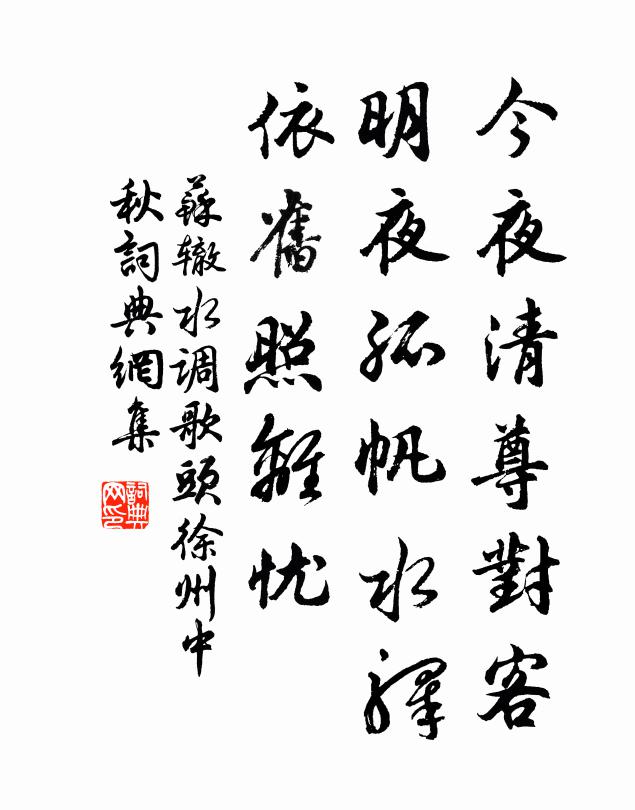 今夜清尊對客
明夜孤帆水驛
依舊照離忧
蘇辙水调歌頭徐州中
秋詞典網集
詞典
网印